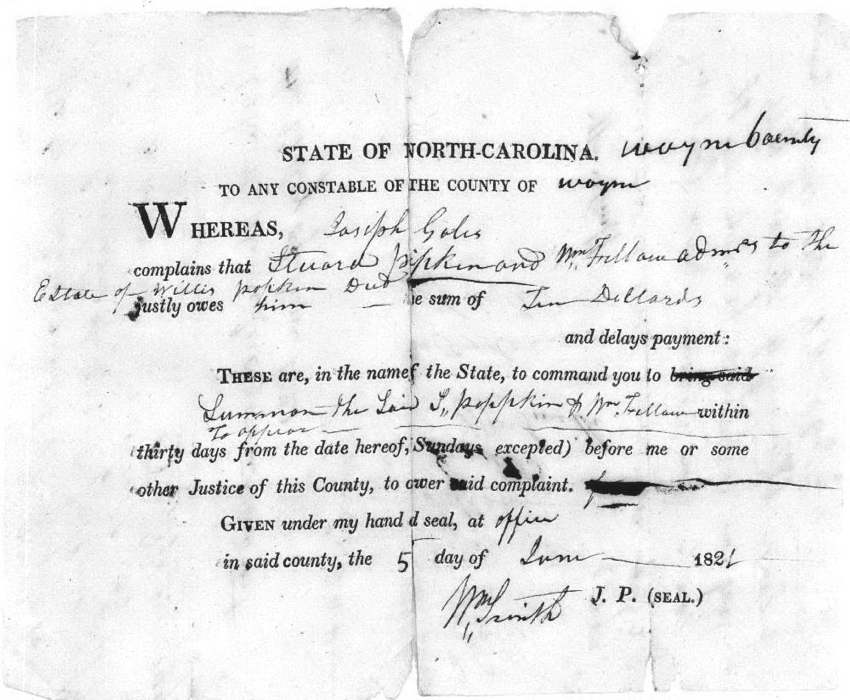 STATE OF NORTH-CAROLINA. wayn County
TO ANY CONSTABLE OF THE COUNTY OF wayn
WHEREAS, Joseph Gales
complains that Stuard pipkin and Wm Fellow admrs to the
Estate of Willis popkin Decd
justly owes him the sum of Ten Dollards
and delays payment:
THESE are, in the name f the State, to command you to bring said
Summon the Said S, poppkin & Wm Fellow within
To appear
thirty days from the date hereof, Sundays excepted) before me or some
other Justice of this County, to wer said complaint.
GIVEN under my hand d seal, at office
in said county, the 5 day of 1821
Wm J. P. (SEAL.)